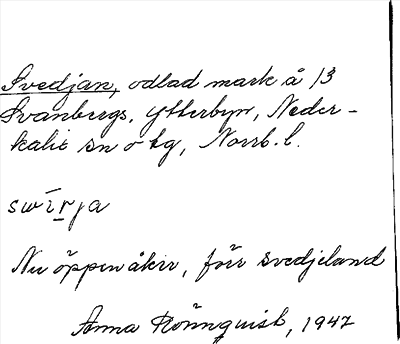 Svedjan, odlad mark å 13
Svanbergs, Ytterbyn, Neder-
kalix sn o tg, Norrb. l.
swīrja
Nu öppen åker, förr svedjeland
Anna Rönnquist, 1947